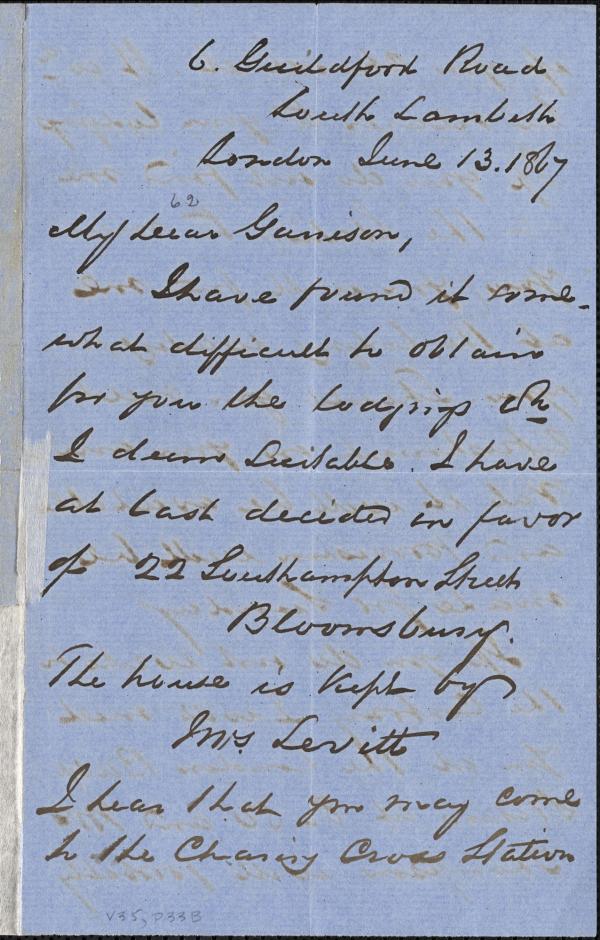 6. Guildford Road
South Lambeth
London June 13. 1867
62
My dear Garrison,
I have found it some-
what difficult to obtain
for you the lodgings wh
I deem suitable. I have
at last decided in favor
of 22 Southampton Street
Bloomsbury.
The house is kept by
Mrs. Levitt
I hear that you may come
to the Charing Cross Station
V35, P33B